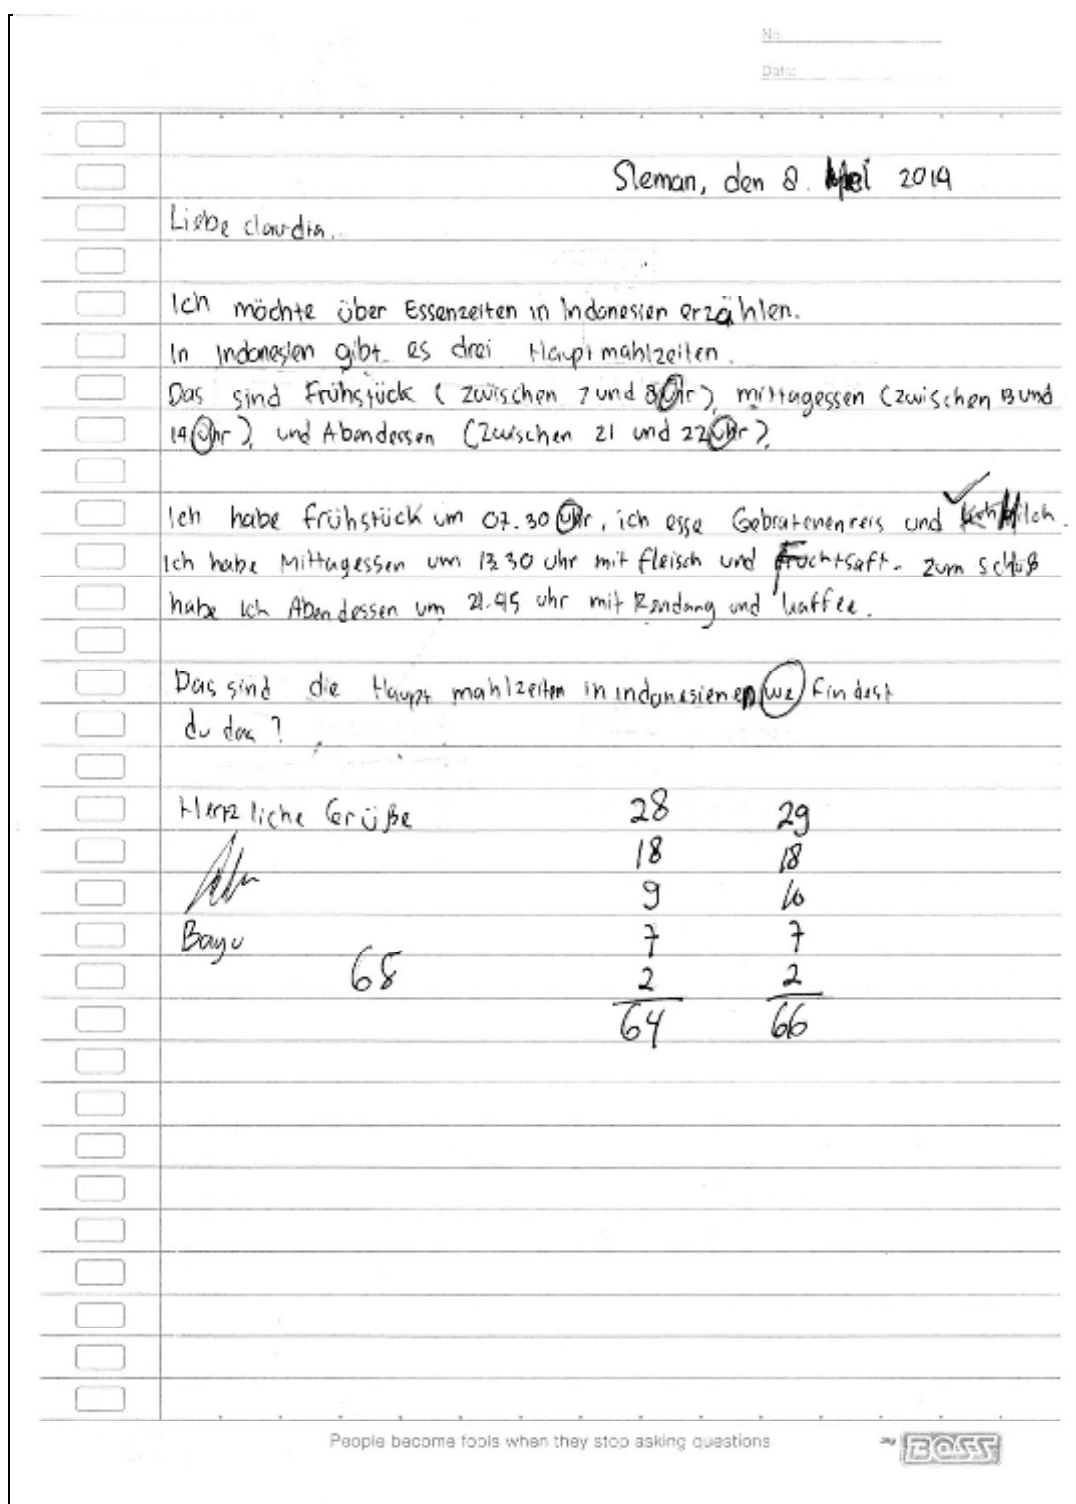 No.
Date:
Sleman, den 8. Mei 2019
Liebe Claudia..
Ich möchte über Essenzeiten in Indonesien erzählen.
In Indonesien gibt es drei Hauptmahlzeiten.
Das sind Frühstück ( zwischen 7 und 8 Uhr), mittagessen (zwischen 13 und
14 Uhr), und Abendessen (zwischen 21 und 22 Uhr),
Ich habe frühstück um 07.30 Uhr, ich esse Gebratenenreis und Milch.
Ich habe Mittagessen um 13.30 uhr mit fleisch und Fruchtsaft. zum schluß
habe ich Abendessen um 21.45 uhr mit Rendang und kaffee.
Das sind die Haupt mahlzeiten in indonesienen we findest
du das ?
Herzliche Grüße 28 29
18 18
9 10
Bayu 7 7
68 2 2
64 66
People become fools when they stop asking questions
my BOSS